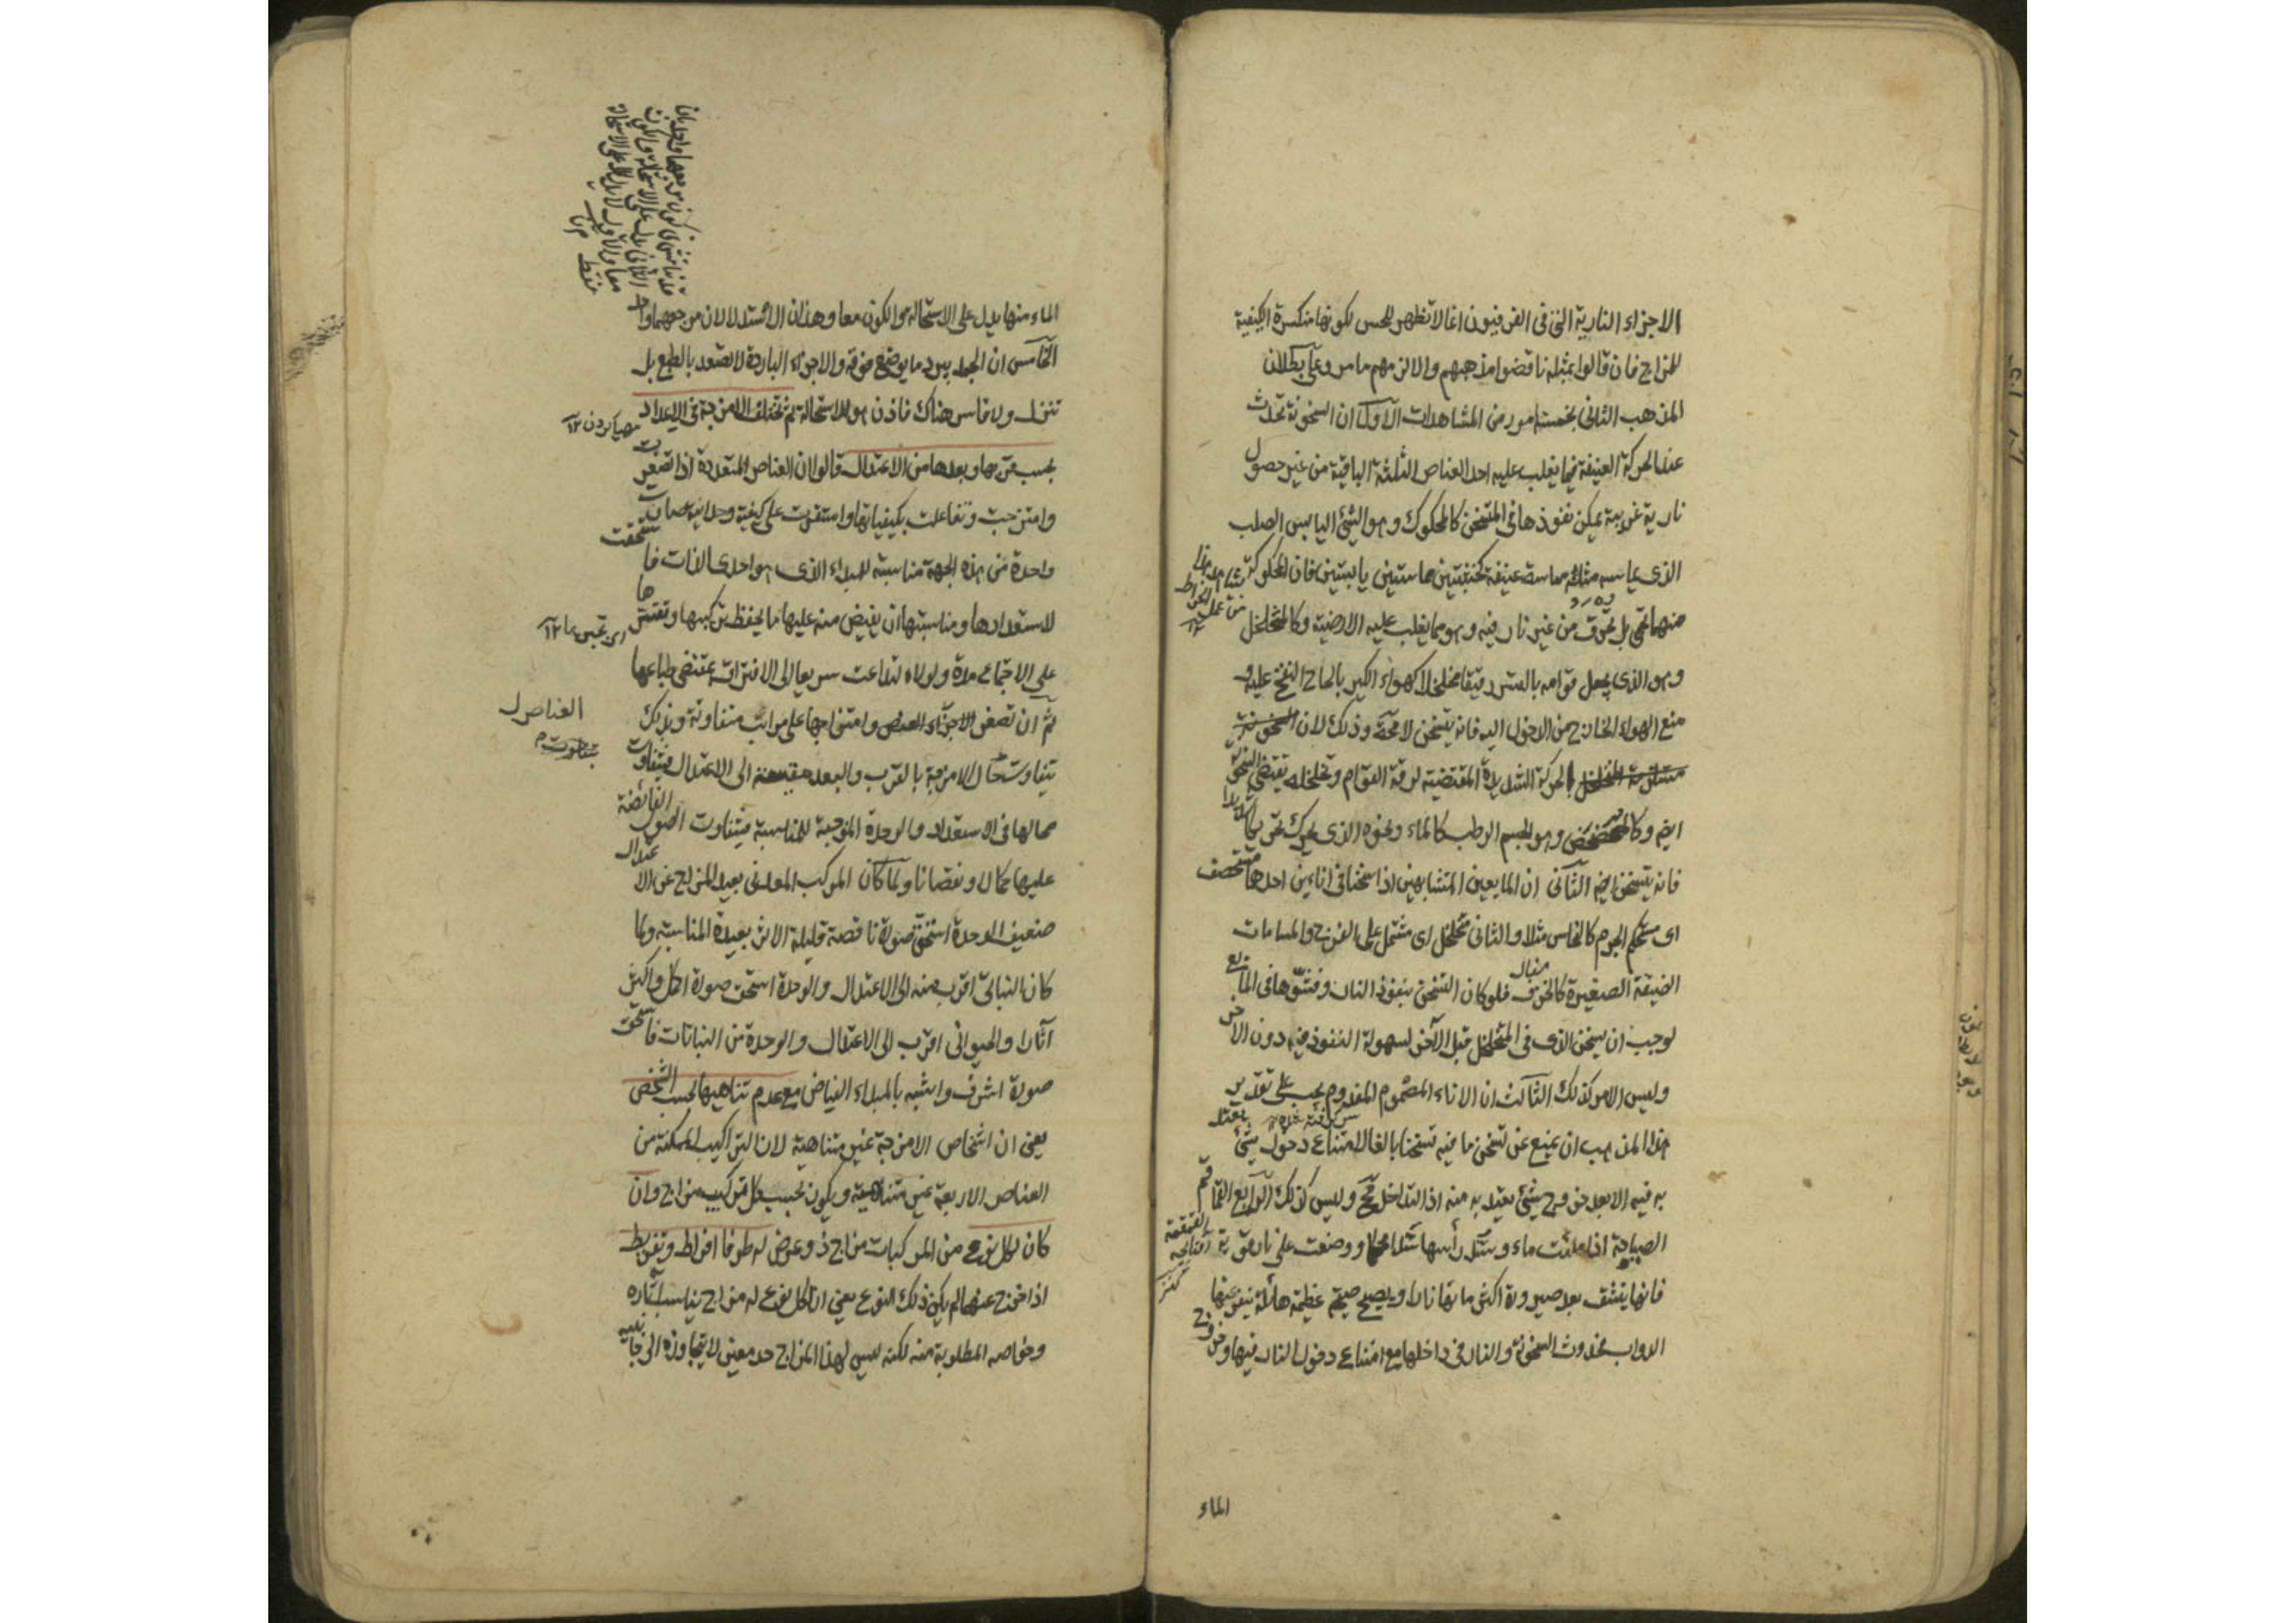 الاجزاء النارية التى فى الفرفيون انما لا تظهر للحس لكونها منكسرة الكيفية
للمزاج فان قالوا بمثله ناقضوا مذهبهم والا لزمهم ما مر وعلى بطلان
المذهب الثانى بخمسة امور من المشاهدات الاول ان السخونة تحدث
عند الحركة العنيفة فيما يغلب عليه احد العناصر الثلثة الباقية من غير حصول
نارية غريبة يمكن نفوذها فى المتسخن كالمحكوك وهو الشئ اليابس الصلب
الذى يماسه مثله مماسة عنيفة كخشبتين يابستين فان المحكوكة
منهما تحمى بل تحرق من غير نار فيه وهو مما يغلب عليه الارضية وكالمتخلخل
وهو الذى يجعل قوامه بالقسر رقيقا متخلخلا كهواء الكير بالحاح النفخ عليه و
منع الهواء الخارج من الدخول اليه فانه يتسخن لا محالة وذلك لان
الحركة الشديدة المقتضية لرقة القوام وتخلخله تقتضى السخونة
ايضا وكالمخضخض وهو الجسم الرطب كالماء ونحوه الذى يحرك تحريكا شديدا
فانه يتسخن ايضا الثانى ان المايعين المتشابهين اذا سخنا فى انائين احدهما مستحصف
اى مستحكم الجرم كالنحاس مثلا والثانى متخلخل اى مشتمل على الفرج والمسامات
الضيقة الصغيرة كالخزف فلو كان التسخن بنفوذ النار وفشوها فى المايع
لوجب ان يسخن الذى فى المتخلخل قبل الآخر لسهولة النفوذ فيه دون الاخر
وليس الامر كذلك الثالث ان الاناء المصموم المفدوم يجب على تقدير
هذا المذهب ان يمنع عن تسخن ما فيه تسخنا بالغا لامتناع دخول شئ يعتد
به فيه الا بعد خروج شئ يعتد به منه اذ التداخل مح وليس كذلك الرابع القماقم
الصياحة اذا ملئت ماء وشد رأسها شدا محكما ووضعت على نار قوية
فانها ينشق بعد صيرورة اكثر مائها نارا ويصيح صيحة عظيمة هائلة ينفر عنها
الدواب فحدوث السخونة والنار فى داخلها مع امتناع دخول النار فيها وخروج
الماء
الماء منها يدل على الاستحالة والكون معا وهذان الاستدلالان من جهة واحدة
الخامس ان الجمد يبرد ما يوضع فوقه والاجزاء الباردة لا تصعد بالطبع بل
تنزل ولا قاسر هناك فاذن هو للاستحالة ثم تختلف الامزجة فى الاعداد
مهيا كردن ١٢
بحسب قربها وبعدها من الاعتدال قالوا ان العناصر المتعددة اذا تصغرت
وامتزجت وتفاعلت بكيفياتها واستقرت على كيفية وحدانية صارت
واحدة من هذه الجهة مناسبة للمبداء الذى هو احدى الذات فاستحقت
لاستعدادها ومناسبتها ان يفيض منه عليها ما يحفظ تركيبها وتقسرها
على الاجتماع مدة ولولاه لتداعت سريعا الى الافتراق بمقتضى طباعها
ثم ان تصغر الاجزاء العنصر وامتزاجها على مراتب متفاوتة وبذلك
يتفاوت حال الامزجة بالقرب والبعد مقيسة الى الاعتدال فيتفاوت
حالها فى الاستعداد والوحدة الموجبة للمناسبة فيتفاوت الصور الفائضة
عليها كمالا ونقصانا ولما كان المركب المعدنى بعيد المزاج عن الاعتدال
ضعيف الوحدة استحق صورة ناقصة قليلة الاثر بعيدة المناسبة ولما
كان النباتى اقرب منه الى الاعتدال والوحدة استحق صورة اكمل واكثر
آثارا والحيوانى اقرب الى الاعتدال والوحدة من النباتات فاستحق
صورة اشرف واشبه بالمبداء الفياض مع عدم تناهيها بحسب الشخص
يعنى ان اشخاص الامزجة غير متناهية لان التراكيب الممكنة من
العناصر الاربعة غير متناهية ويكون بحسب كل تركيب مزاج وان
كان لكل نوع من المركبات مزاج ذو عرض له طرفا افراط وتفريط
اذا خرج عنهما لم يكن ذلك النوع يعنى ان لكل نوع له مزاج يناسب آثاره
وخواصه المطلوبة منه لكنه ليس لهذا المزاج حد معين لا يتجاوزه الى جانبيه